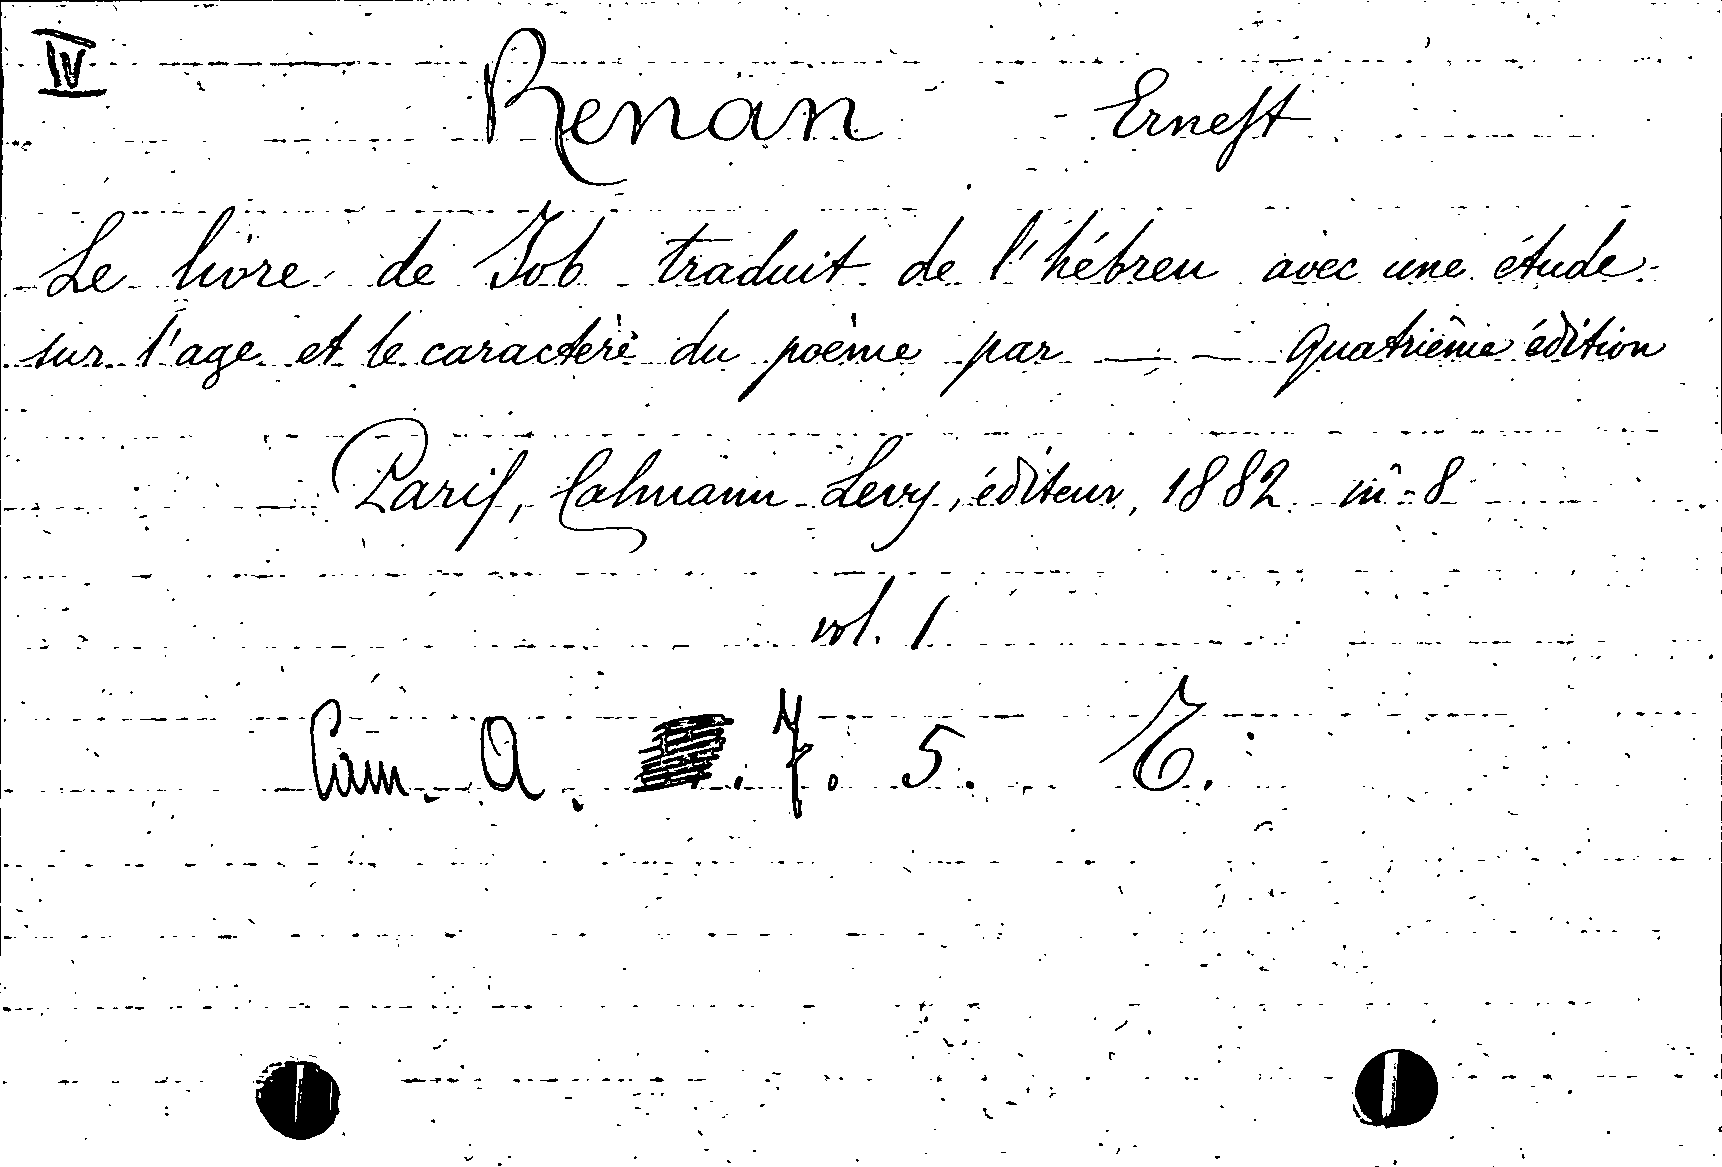 IV
Renan Ernest
Le livre de Job traduit de l'hébreu avec une étude
sur l'age et le caractère du poème par — — quatrième édition
Paris, Calmann Levy, éditeur, 1882 in-8
vol. 1
Cam. A. . 7. 5.